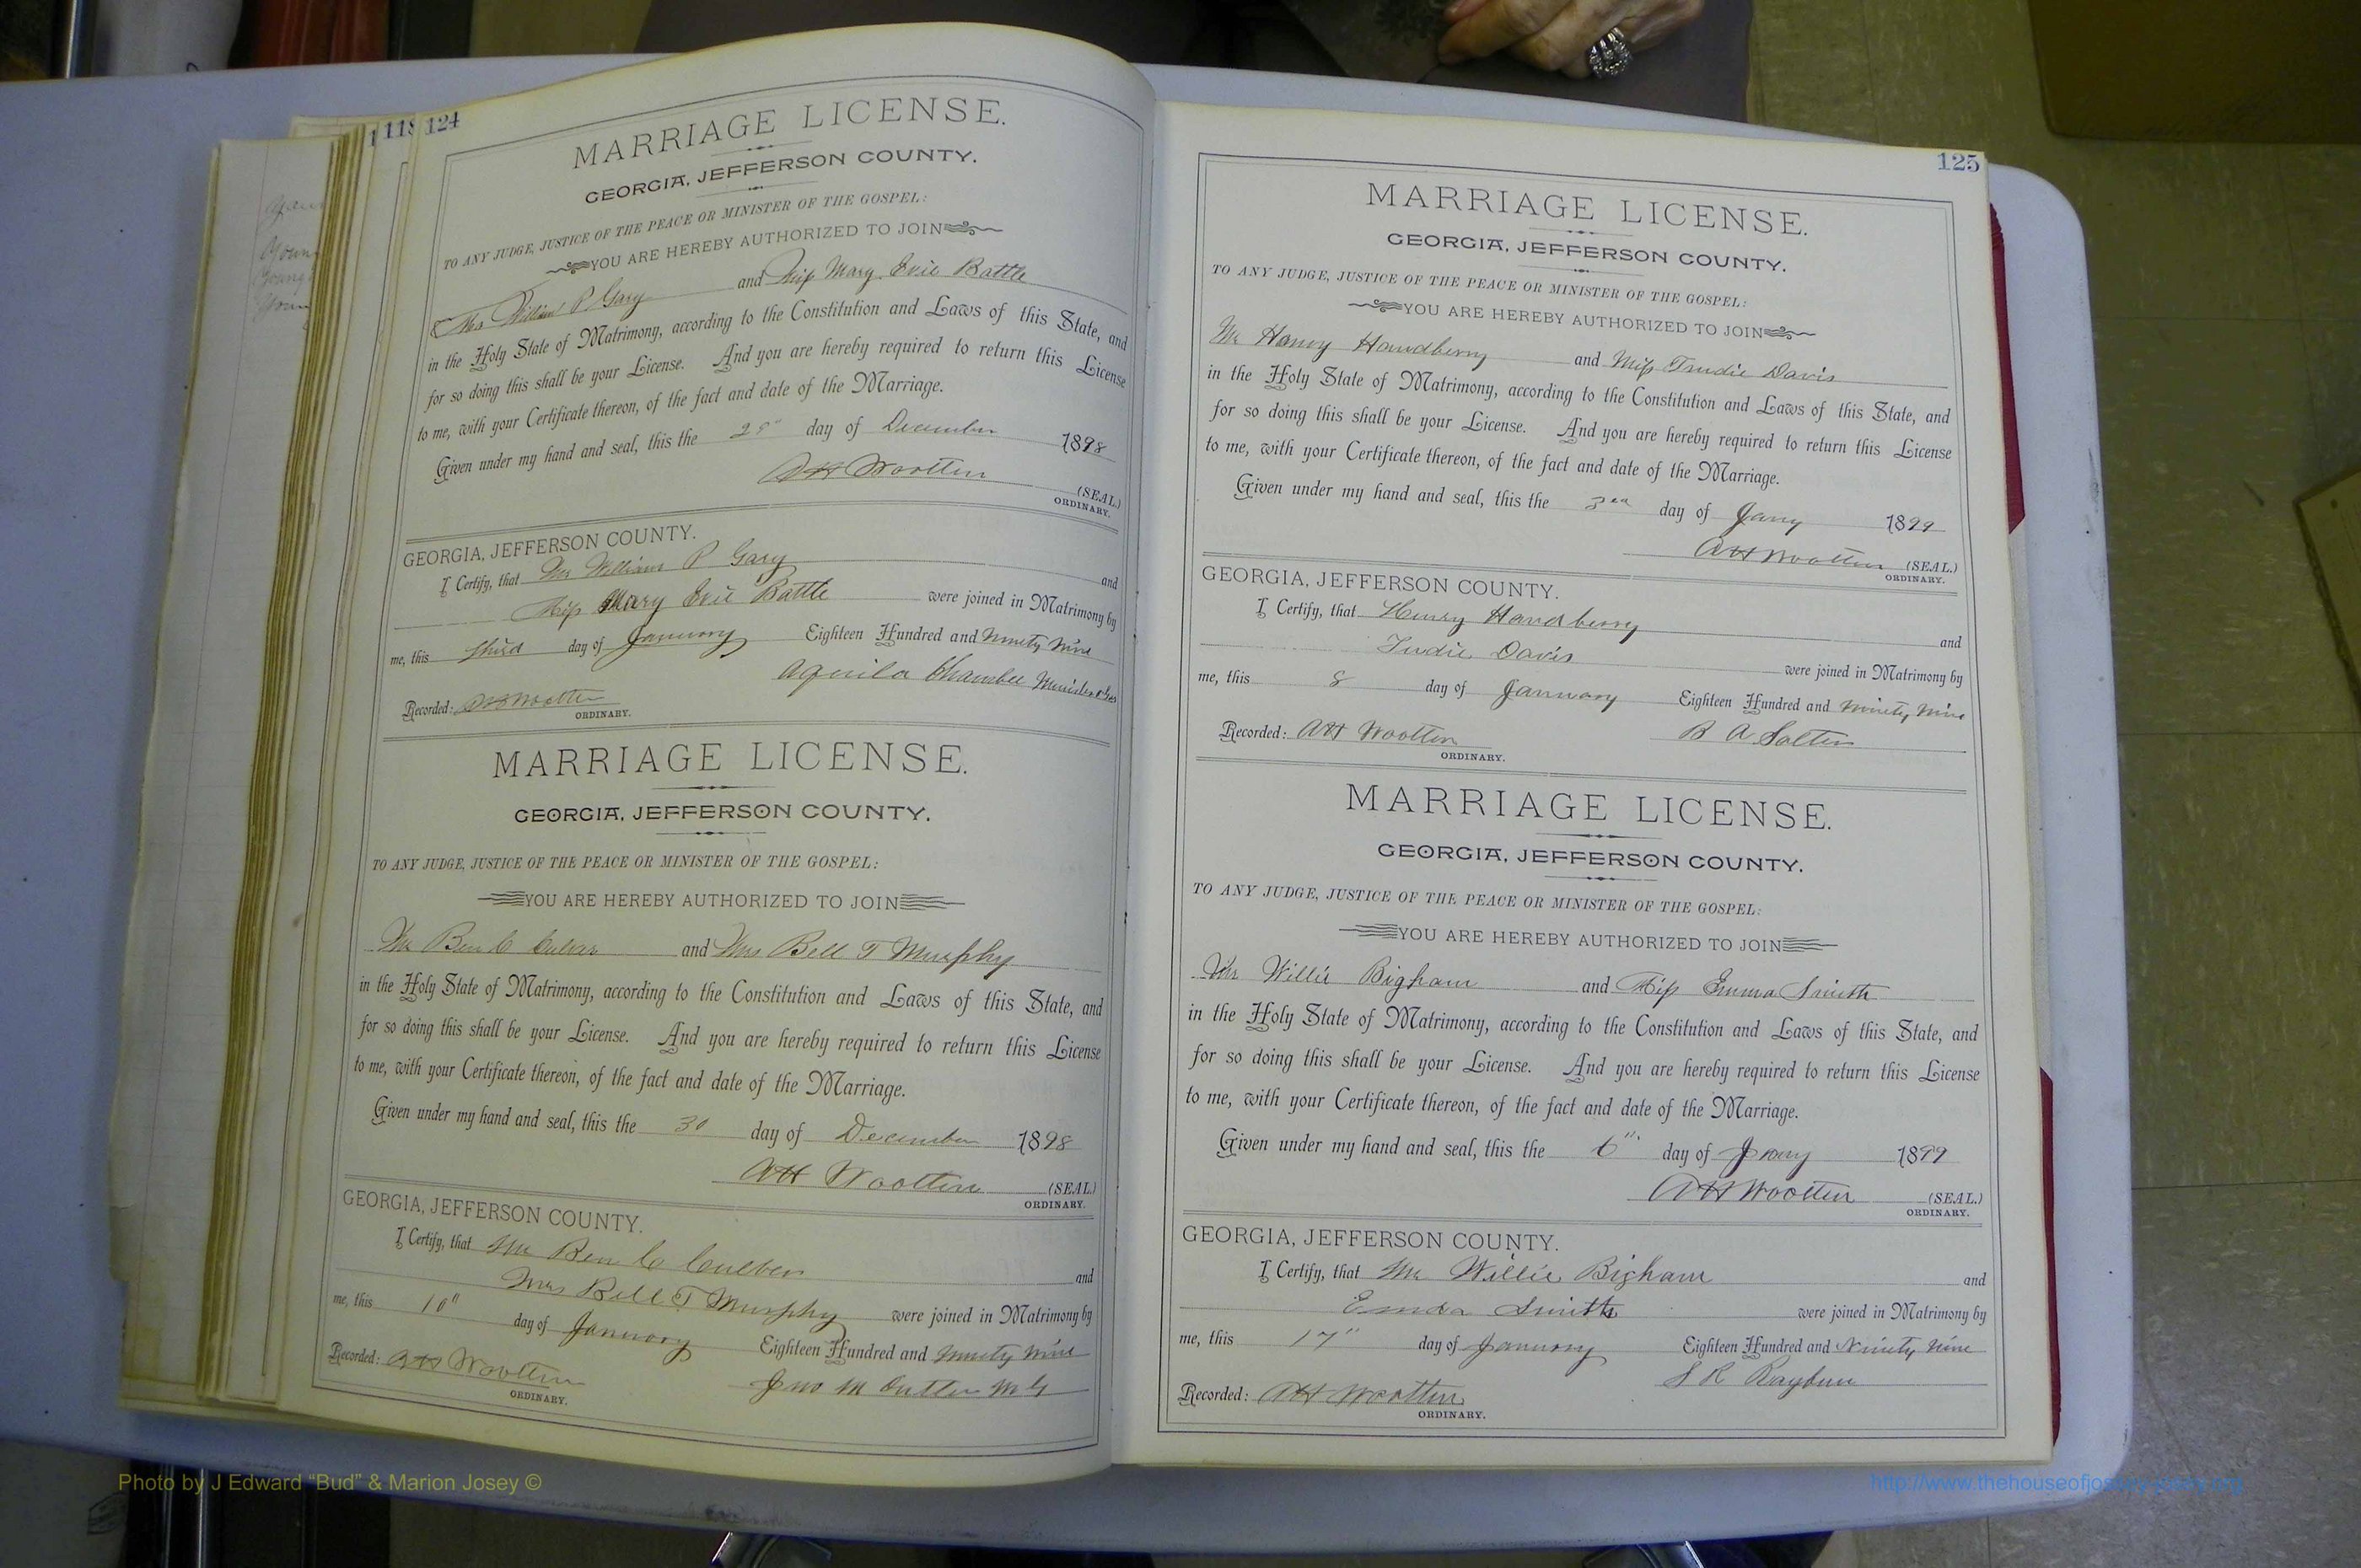 124
MARRIAGE LICENSE.
GEORGIA, JEFFERSON COUNTY.
TO ANY JUDGE, JUSTICE OF THE PEACE OR MINISTER OF THE GOSPEL:
YOU ARE HEREBY AUTHORIZED TO JOIN
Mr William P Gary and Miss Mary Evie Battle
in the Holy State of Matrimony, according to the Constitution and Laws of this State, and
for so doing this shall be your License. And you are hereby required to return this License
to me, with your Certificate thereon, of the fact and date of the Marriage.
Given under my hand and seal, this the day of December 1898
AH Wootten (SEAL.)
ORDINARY.
GEORGIA, JEFFERSON COUNTY.
I Certify, that Mr William P Gary and
Miss Mary Evie Battle were joined in Matrimony by
me, this third day of January Eighteen Hundred and Ninety Nine
Aquila Chamblee Minister
Recorded: AH Wootten
ORDINARY.
MARRIAGE LICENSE.
GEORGIA, JEFFERSON COUNTY.
TO ANY JUDGE, JUSTICE OF THE PEACE OR MINISTER OF THE GOSPEL:
YOU ARE HEREBY AUTHORIZED TO JOIN
Mr Ben C and Mrs Bell T Murphy
in the Holy State of Matrimony, according to the Constitution and Laws of this State, and
for so doing this shall be your License. And you are hereby required to return this License
to me, with your Certificate thereon, of the fact and date of the Marriage.
Given under my hand and seal, this the 30 day of December 1898
AH Wootten (SEAL.)
ORDINARY.
GEORGIA, JEFFERSON COUNTY.
I Certify, that Mr Ben C and
Mrs Bell T Murphy were joined in Matrimony by
me, this 10" day of January Eighteen Hundred and Ninety Nine
Jno M M G
Recorded: AH Wootten
ORDINARY.
125
MARRIAGE LICENSE.
GEORGIA, JEFFERSON COUNTY.
TO ANY JUDGE, JUSTICE OF THE PEACE OR MINISTER OF THE GOSPEL:
YOU ARE HEREBY AUTHORIZED TO JOIN
Mr Henry Handberry and Miss Trudie Davis
in the Holy State of Matrimony, according to the Constitution and Laws of this State, and
for so doing this shall be your License. And you are hereby required to return this License
to me, with your Certificate thereon, of the fact and date of the Marriage.
Given under my hand and seal, this the 3rd day of Jany 1899
AH Wootten (SEAL.)
ORDINARY.
GEORGIA, JEFFERSON COUNTY.
I Certify, that Henry Handberry and
Tudie Davis were joined in Matrimony by
me, this 8 day of January Eighteen Hundred and Ninety Nine
B A Salter
Recorded: AH Wootten
ORDINARY.
MARRIAGE LICENSE.
GEORGIA, JEFFERSON COUNTY.
TO ANY JUDGE, JUSTICE OF THE PEACE OR MINISTER OF THE GOSPEL:
YOU ARE HEREBY AUTHORIZED TO JOIN
Mr Willie Bigham and Miss Emma Smith
in the Holy State of Matrimony, according to the Constitution and Laws of this State, and
for so doing this shall be your License. And you are hereby required to return this License
to me, with your Certificate thereon, of the fact and date of the Marriage.
Given under my hand and seal, this the 6" day of Jany 1899
AH Wootten (SEAL.)
ORDINARY.
GEORGIA, JEFFERSON COUNTY.
I Certify, that Mr Willie Bigham and
Emma Smith were joined in Matrimony by
me, this 17" day of January Eighteen Hundred and Ninety Nine
S R Rayburn
Recorded: AH Wootten
ORDINARY.
Photo by J Edward “Bud” & Marion Josey ©